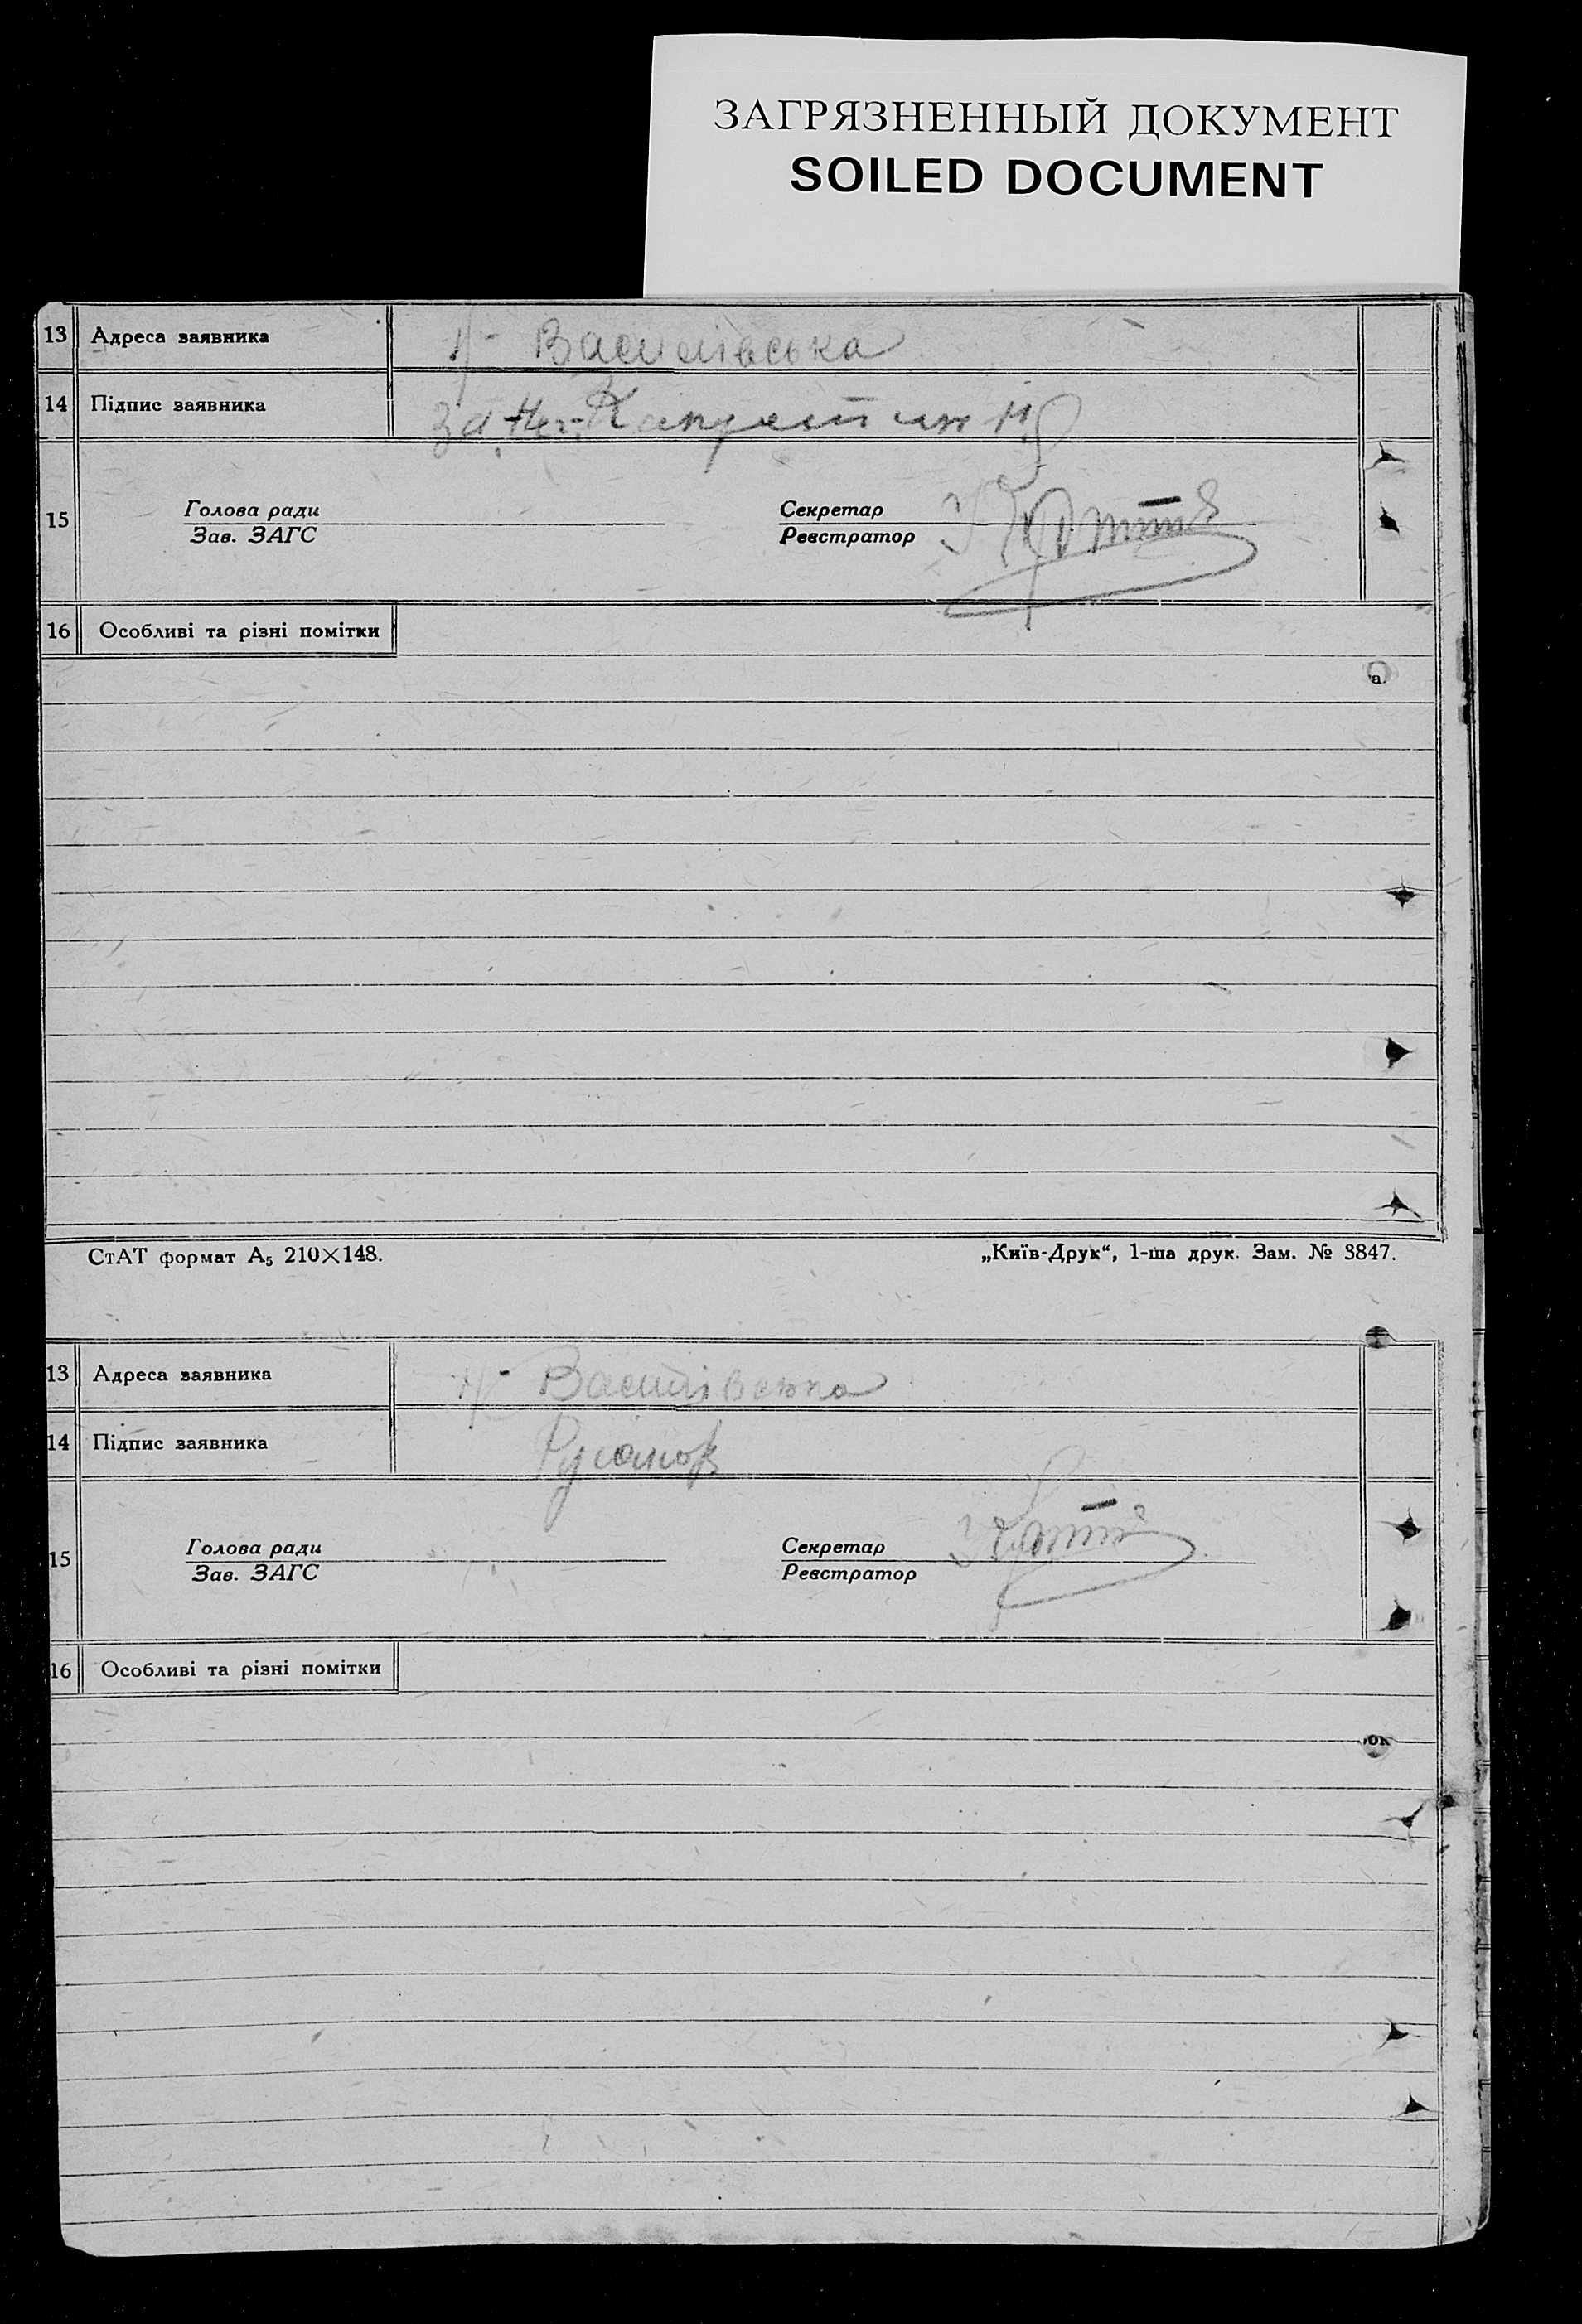 ЗАГРЯЗНЕННЫЙ ДОКУМЕНТ
SOILED DOCUMENT
13 Адреса заявника Н- Василівська
14 Підпис заявника За
15 Голова ради Секретар
Зав. ЗАГС Реєстратор
16 Особливі та різні помітки
СтАТ формат А₅ 210×148. „Київ-Друк“, 1-ша друк. Зам. № 3847.
13 Адреса заявника Н- Василівська
14 Підпис заявника
15 Голова ради Секретар
Зав. ЗАГС Реєстратор
16 Особливі та різні помітки